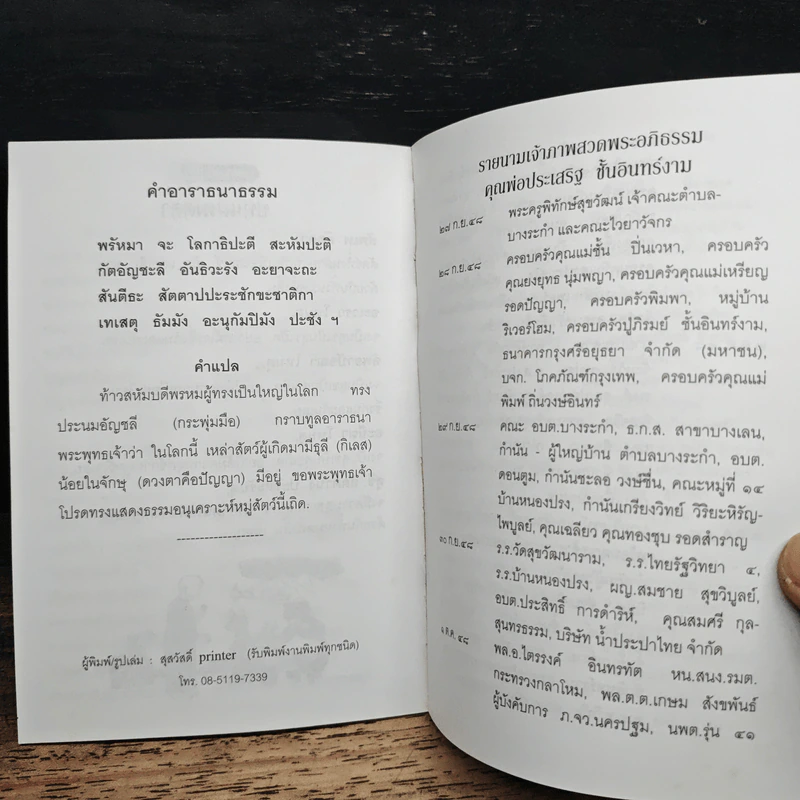 คำอาราธนาธรรม
พรัหมา จะ โลกาธิปะตี สะหัมปะติ
กัตอัญชะลี อันธิวะรัง อะยาจะถะ
สันตีธะ สัตตาปประชักขะชาติกา
เทเสตุ ธัมมัง อะนุกัมปิมัง ปะชัง ฯ
คำแปล
ท้าวสหัมบดีพรหมผู้ทรงเป็นใหญ่ในโลก ทรง
ประนมอัญชลี (กระพุ่มมือ) กราบทูลอาราธนา
พระพุทธเจ้าว่า ในโลกนี้ เหล่าสัตว์ผู้เกิดมามีธุลี (กิเลส)
น้อยในจักษุ (ดวงตาคือปัญญา) มีอยู่ ขอพระพุทธเจ้า
โปรดทรงแสดงธรรมอนุเคราะห์หมู่สัตว์นี้เถิด.
--------------------
ผู้พิมพ์/รูปเล่ม : สุสวัสดิ์ printer (รับพิมพ์งานพิมพ์ทุกชนิด)
โทร. 08-5119-7339
รายนามเจ้าภาพสวดพระอภิธรรม
คุณพ่อประเสริฐ ชั้นอินทร์งาม
๒๗ ก.ย.๔๘ พระครูพิทักษ์สุขวัฒน์ เจ้าคณะตำบล-
บางระกำ และคณะไวยาวัจกร
๒๘ ก.ย.๔๘ ครอบครัวคุณแม่ชั้น ปิ่นเวหา, ครอบครัว
คุณยงยุทธ นุ่มพญา, ครอบครัวคุณแม่เหรียญ
รอดปัญญา, ครอบครัวพิมพา, หมู่บ้าน
ริเวอร์โฮม, ครอบครัวปู่ภิรมย์ ชั้นอินทร์งาม,
ธนาคารกรุงศรีอยุธยา จำกัด (มหาชน),
บจก. โภคภัณฑ์กรุงเทพ, ครอบครัวคุณแม่
พิมพ์ ถิ่นวงษ์อินทร์
๒๙ ก.ย.๔๘ คณะ อบต.บางระกำ, ธ.ก.ส. สาขาบางเลน,
กำนัน - ผู้ใหญ่บ้าน ตำบลบางระกำ, อบต.
ดอนตูม, กำนันชะลอ วงษ์ชื่น, คณะหมู่ที่ ๑๔
บ้านหนองปรง, กำนันเกรียงวิทย์ วิริยะหิรัญ-
ไพบูลย์, คุณเฉลียว คุณทองชุบ รอดสำราญ
๓๐ ก.ย.๔๘ ร.ร.วัดสุขวัฒนาราม, ร.ร.ไทยรัฐวิทยา ๔,
ร.ร.บ้านหนองปรง, ผญ.สมชาย สุขวิบูลย์,
อบต.ประสิทธิ์ การดำริห์, คุณสมศรี กุล-
สุนทรธรรม, บริษัท น้ำประปาไทย จำกัด
๑ ต.ค. ๔๘ พล.อ.ไตรรงค์ อินทรทัต หน.สนง.รมต.
กระทรวงกลาโหม, พล.ต.ต.เกษม สังขพันธ์
ผู้บังคับการ ภ.จว.นครปฐม, นพต.รุ่น ๔๑